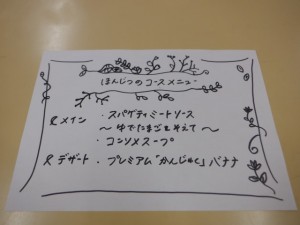 ほんじつのコースメニュー
メイン ・スパゲティミートソース
〜ゆでたまごをそえて〜
・コンソメスープ
デザート・プレミアム「かんじゅく」バナナ